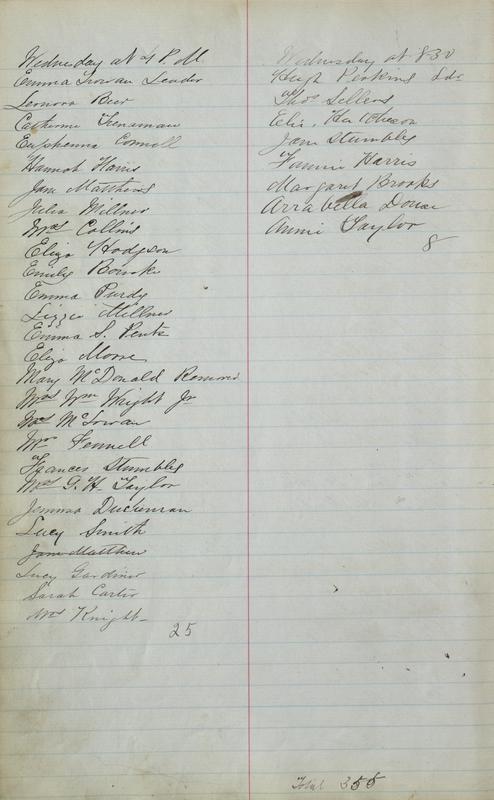 Wednesday at 4 P.M.
Emma Trowan Leader
Lenora Beer
Catherine Teenaman
Euphemia Connell
Hannah Harris
Jane Matthews
Julia Millner
Mrs Collins
Eliza Hodgson
Emily Bourke
Emma Purdy
Lizzie Millner
Emma S. Pentz
Eliza Moore
Mary McDonald Removed
Mrs Wm Wright Jr
Mrs McGowan
Mrs Fennell
Frances Stumbles
Mrs G. H. Taylor
Jemima Duckenran
Lucy Smith
Jane Matthew
Lucy Gardiner
Sarah Carter
Mrs Knight
25
Wednesday at 8 30
Hugh Perkins Ldr
Thos Sellens
Eliz. Hutcheson
Jane Stumbles
Fannie Harris
Margaret Brooks
Arrabella
Annie Taylor
8
Total 355